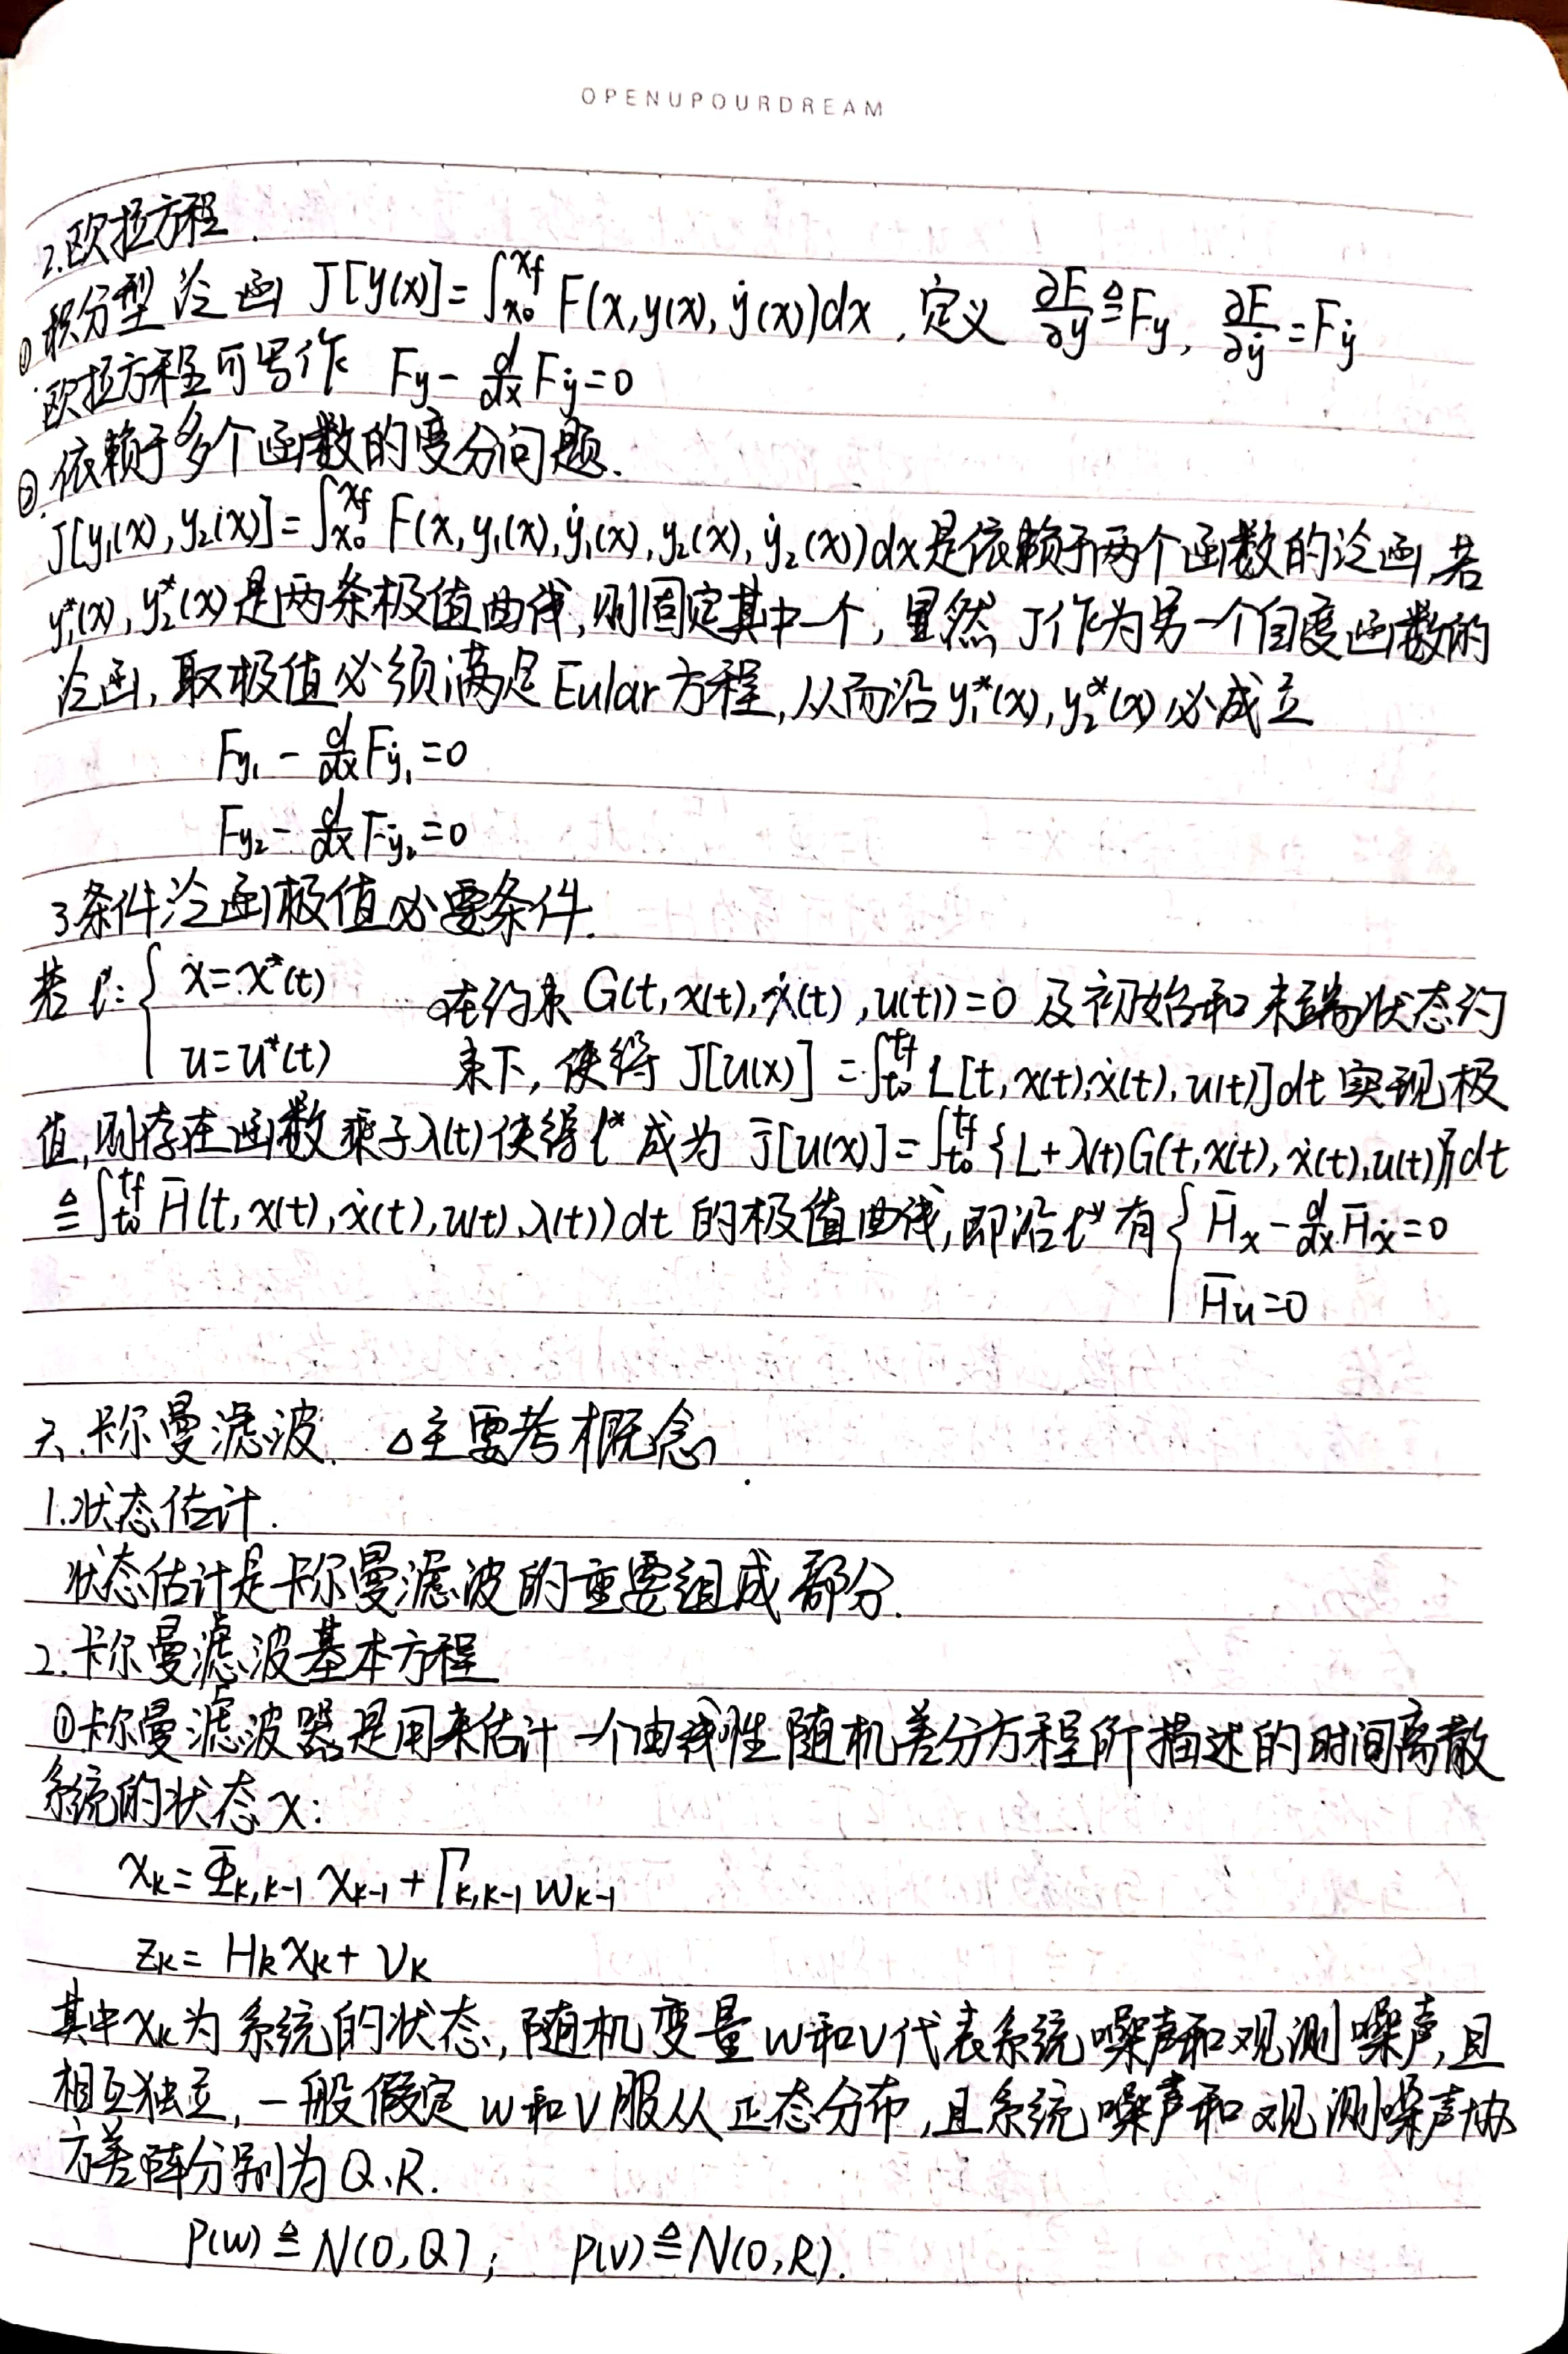 OPENUPOURDREAM
2.欧拉方程.
①积分型泛函 J[y(x)]=∫_{x₀}^{x_f} F(x,y(x),ẏ(x))dx, 定义 ∂F/∂y ≜ F_y, ∂F/∂ẏ = F_ẏ
欧拉方程可写作 F_y - d/dx F_ẏ = 0
②依赖于多个函数的变分问题.
J[y₁(x),y₂(x)]=∫_{x₀}^{x_f} F(x,y₁(x),ẏ₁(x),y₂(x),ẏ₂(x))dx是依赖于两个函数的泛函,若
y₁*(x),y₂*(x)是两条极值曲线,则固定其中一个,显然J作为另一个自变函数的
泛函,取极值必须满足Eular方程,从而沿y₁*(x),y₂*(x)必成立
F_{y₁} - d/dx F_{ẏ₁} = 0
F_{y₂} - d/dx F_{ẏ₂} = 0
3条件泛函极值必要条件.
若 l*: { x=x*(t) 在约束G(t,x(t),ẋ(t),u(t))=0 及初始和末端状态约
u=u*(t) 束下,使得 J[u(x)]=∫_{t₀}^{t_f} L[t,x(t),ẋ(t),u(t)]dt 实现极
值,则存在函数乘子λ(t)使得l*成为 J̄[u(x)]=∫_{t₀}^{t_f} {L+λ(t)G(t,x(t),ẋ(t),u(t))}dt
≜∫_{t₀}^{t_f} H̄(t,x(t),ẋ(t),u(t),λ(t))dt 的极值曲线,即沿l*有 { H̄_x - d/dx H̄_ẋ = 0
H̄_u = 0
六.卡尔曼滤波. △主要考概念.
1.状态估计.
状态估计是卡尔曼滤波的重要组成部分.
2.卡尔曼滤波基本方程
①卡尔曼滤波器是用来估计一个由线性随机差分方程所描述的时间离散
系统的状态x:
x_k = Φ_{k,k-1} x_{k-1} + Γ_{k,k-1} w_{k-1}
z_k = H_k x_k + v_k
其中x_k为系统的状态,随机变量w和v代表系统噪声和观测噪声,且
相互独立,一般假定w和v服从正态分布,且系统噪声和观测噪声协
方差阵分别为Q、R.
P(w) ≜ N(0,Q); P(v) ≜ N(0,R).